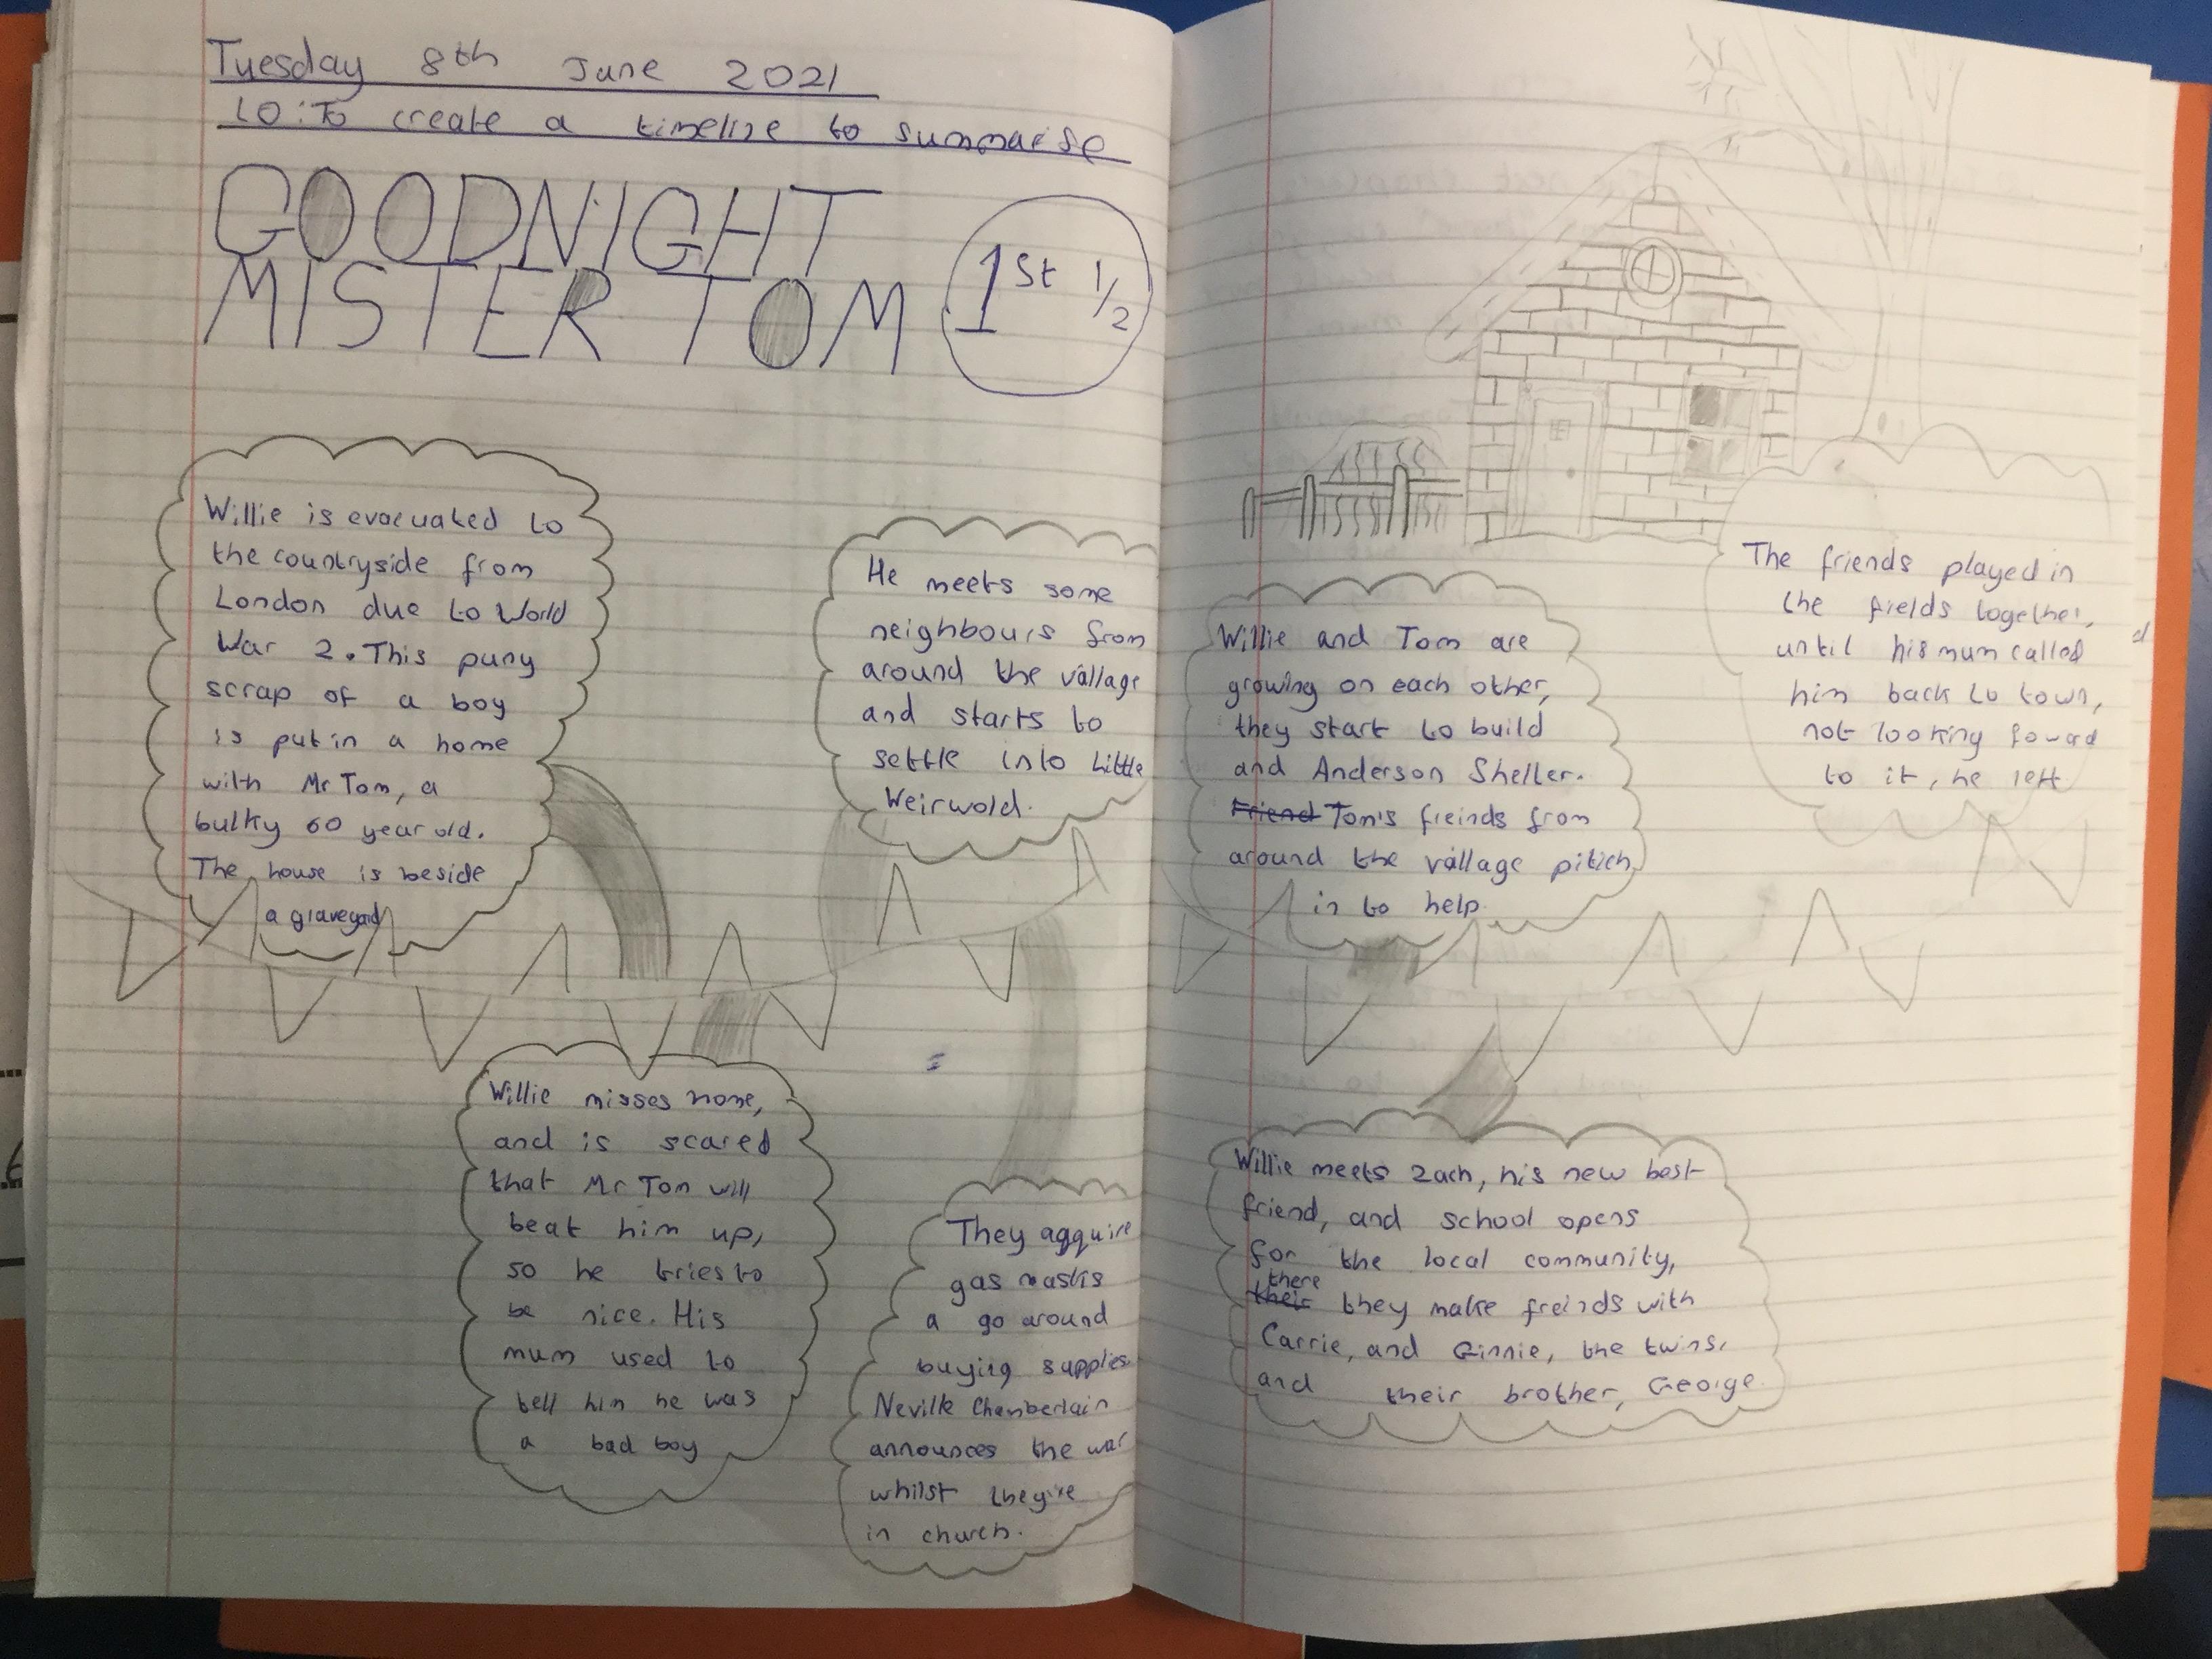 Tuesday 8th June 2021
LO: To create a timeline to summarise
GOODNIGHT
MISTER TOM
1st 1/2
Willie is evacuated to
the countryside from
London due to World
War 2. This puny
scrap of a boy
is put in a home
with Mr Tom, a
bulky 60 year old.
The house is beside
a graveyard
Willie misses home,
and is scared
that Mr Tom will
beat him up,
so he tries to
be nice. His
mum used to
tell him he was
a bad boy
He meets some
neighbours from
around the village
and starts to
settle into Little
Weirwold.
They aqquire
gas masks
a go around
buying supplies
Neville Chamberlain
announces the war
whilst they're
in church.
Willie and Tom are
growing on each other,
they start to build
and Anderson Shelter.
Friend Tom's freinds from
around the village pitich
in to help
Willie meets Zach, his new best
friend, and school opens
for the local community,
there
their they make freinds with
Carrie, and Ginnie, the twins,
and their brother, George.
The friends played in
the fields together,
until his mum called
him back to town,
not looking foward
to it, he left